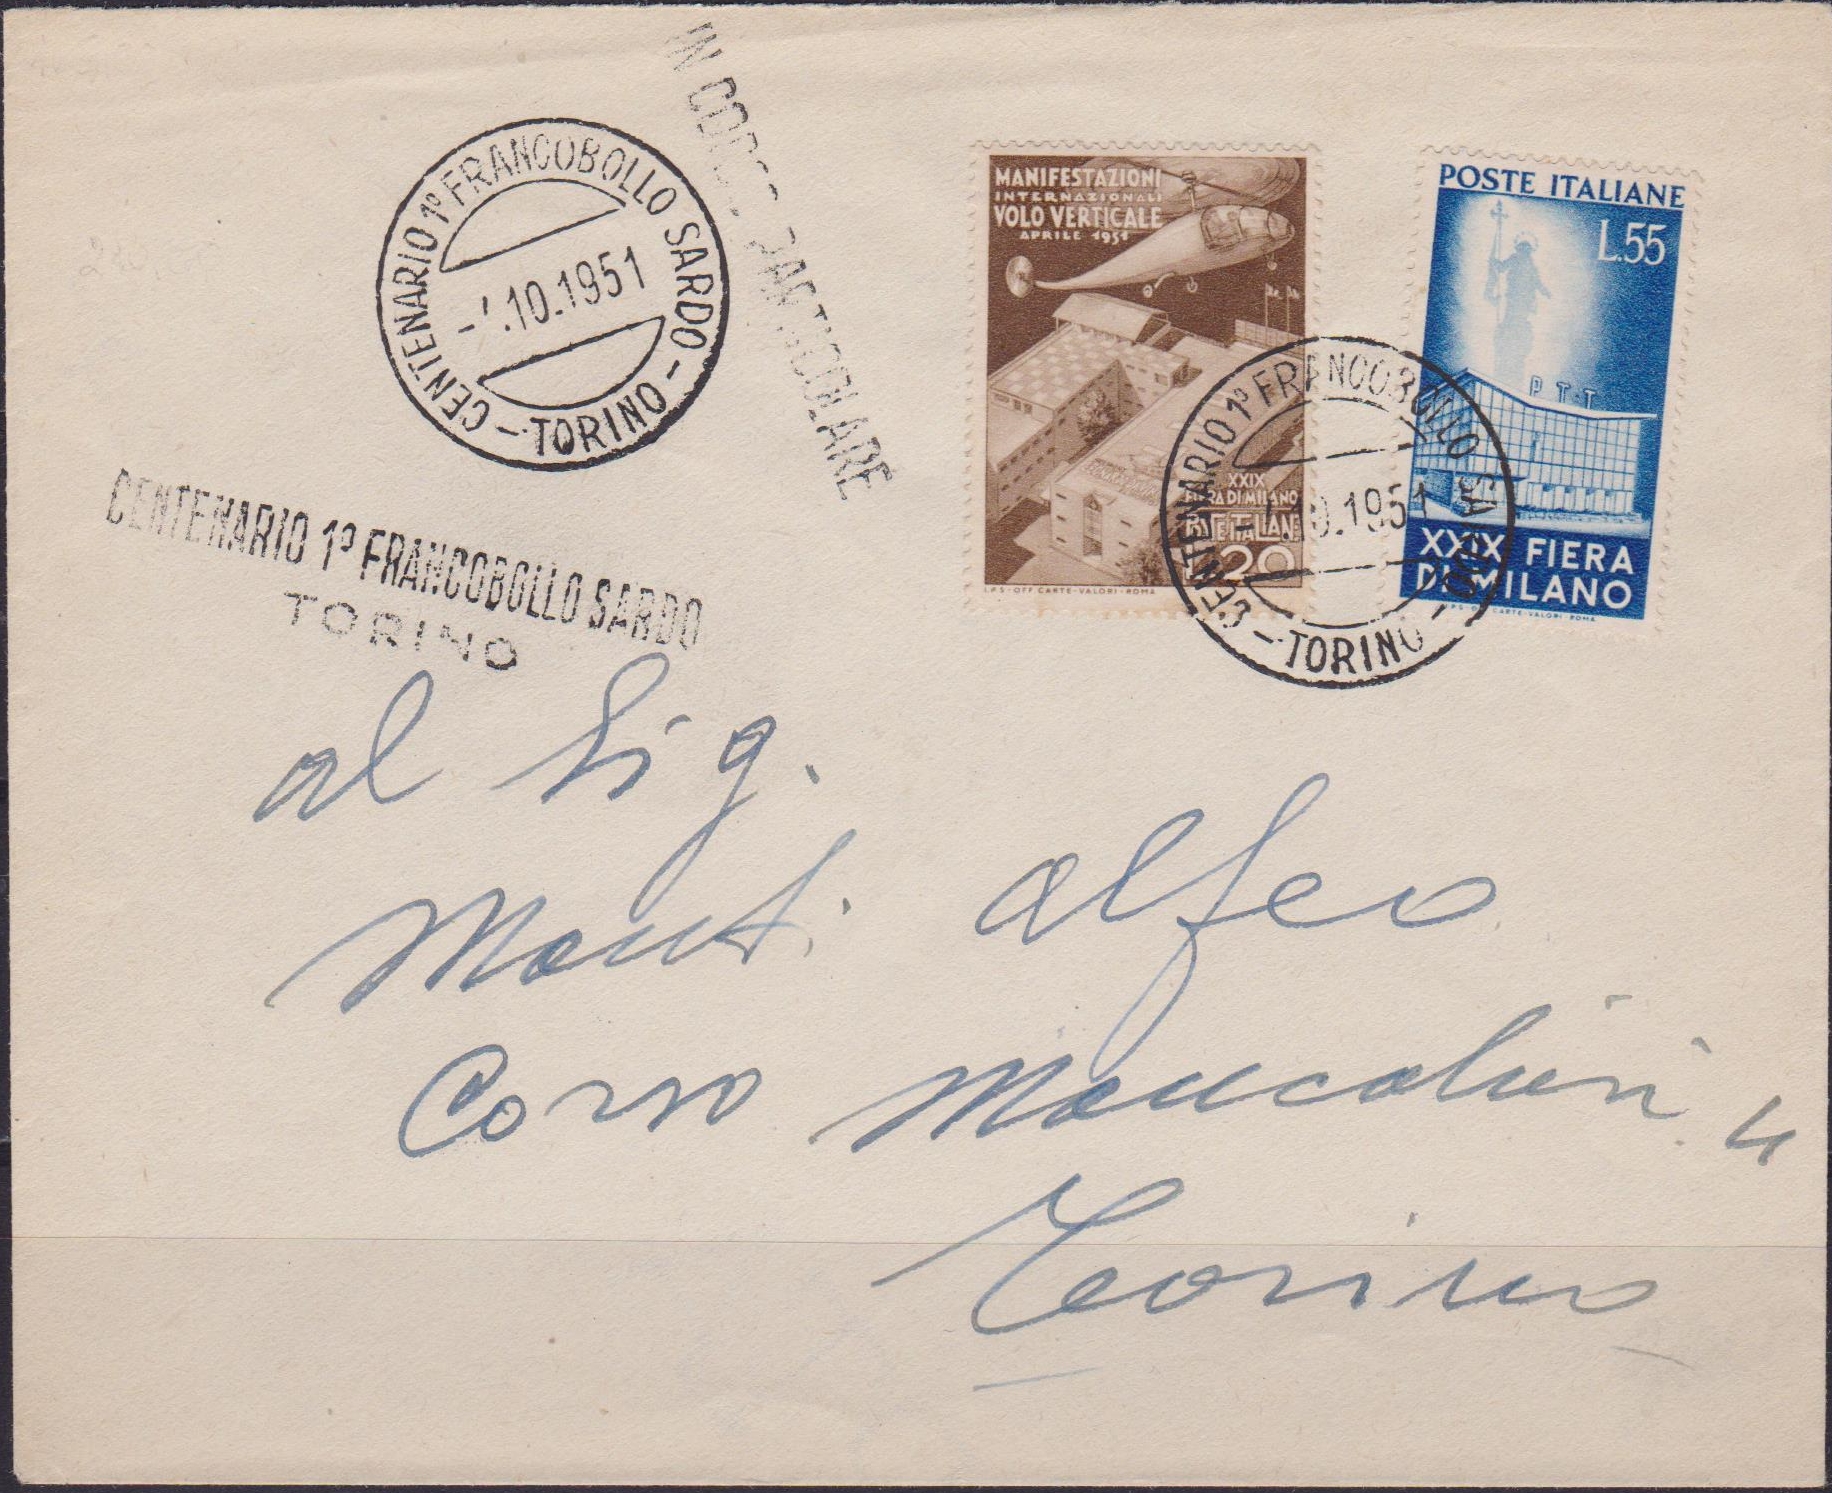 IN CORSO PARTICOLARE
CENTENARIO 1º FRANCOBOLLO SARDO
- TORINO -
10.1951
CENTENARIO 1º FRANCOBOLLO SARDO
TORINO
MANIFESTAZIONI
INTERNAZIONALI
VOLO VERTICALE
APRILE 1951
XXIX
FIERA DI MILANO
POSTE ITALIANE
20
I.P.S - OFF CARTE-VALORI - ROMA
POSTE ITALIANE
L.55
PTT
XXIX FIERA
DI MILANO
CARTE-VALORI - ROMA
CENTENARIO 1º FRANCOBOLLO SARDO
- TORINO -
10.1951
al Sig.
Alfeo
Corso Moncalieri 4
Torino